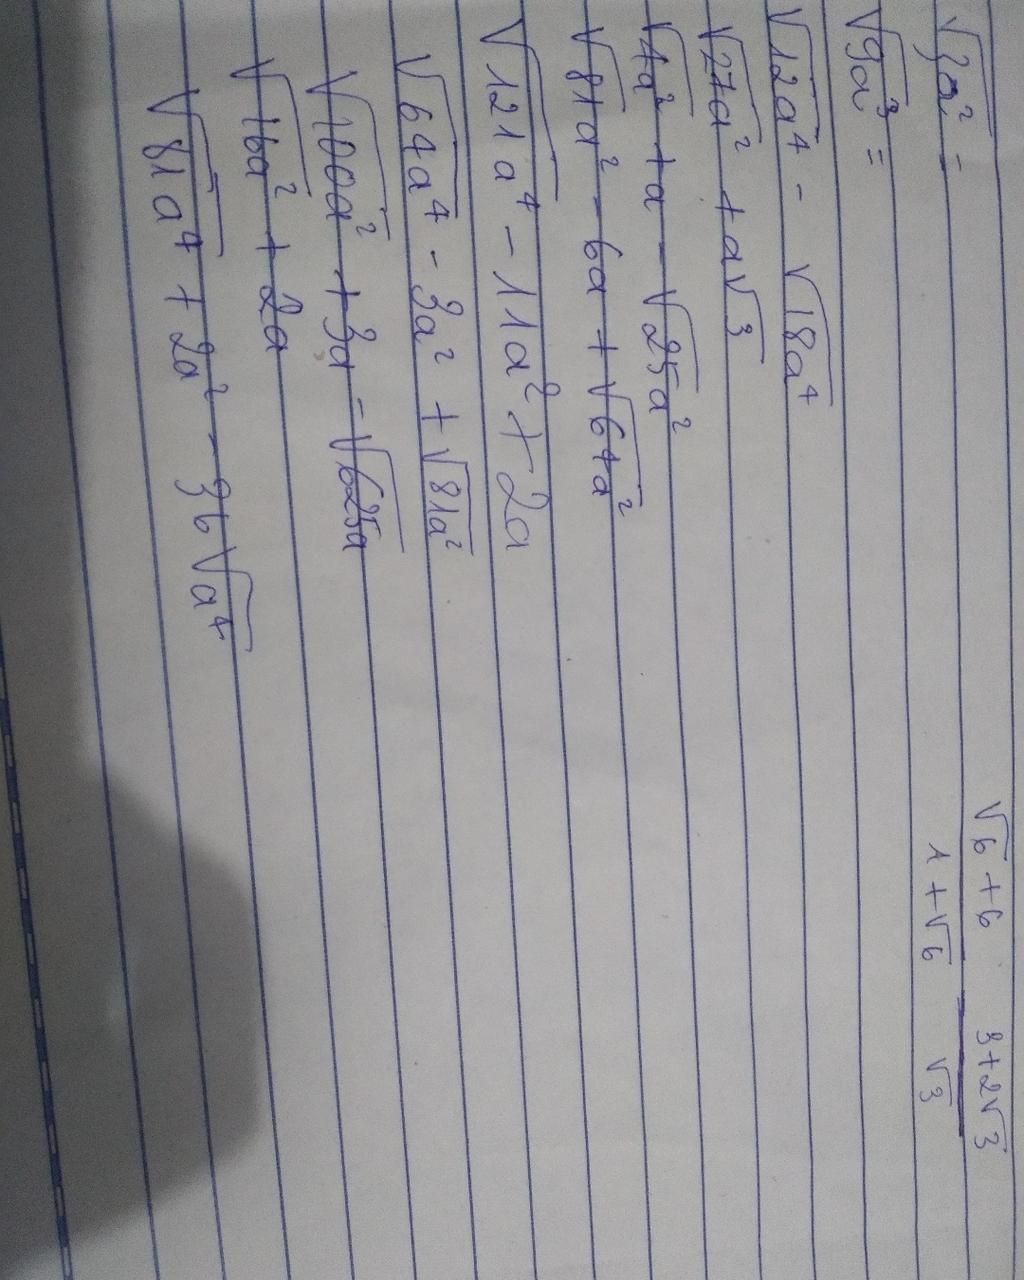 √3a² =
√9a³ =
√12a⁴ - √18a⁴
√27a² + a√3
√4a² + a - √25a²
√81a² - 6a + √64a²
√121a⁴ - 11a² + 2a
√64a⁴ - 3a² + √81a²
√100a² + 3a - √625a
√16a² + 2a
√81a⁴ + 2a² - 36√a⁴
√6+6 3+2√3
1+√6 √3